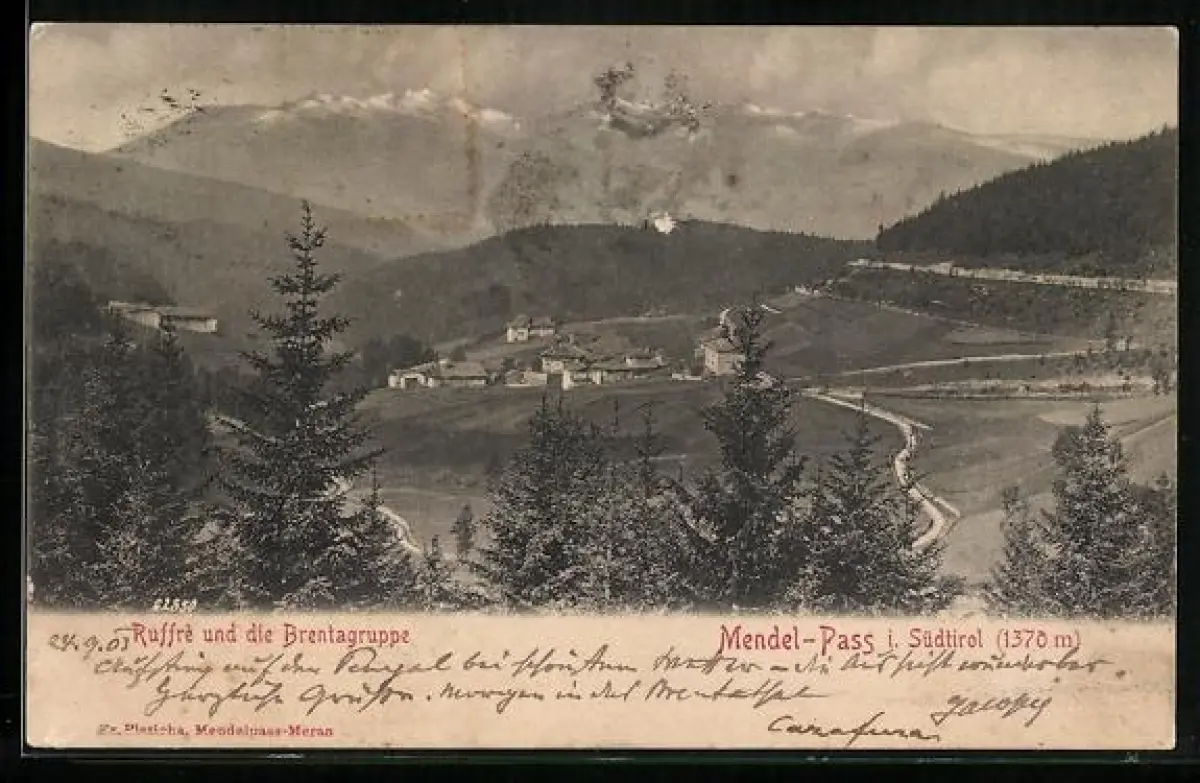 62350
Ruffrè und die Brentagruppe
Mendel-Pass i. Südtirol (1370 m)
24.9.03
Aufstieg auf den Penegal bei schönsten Wetter – die Aussicht wunderbar.
Herzliche Grüße. Morgen in das Brentathal
Jacopj
Fr. Pleticha, Mendelpass-Meran